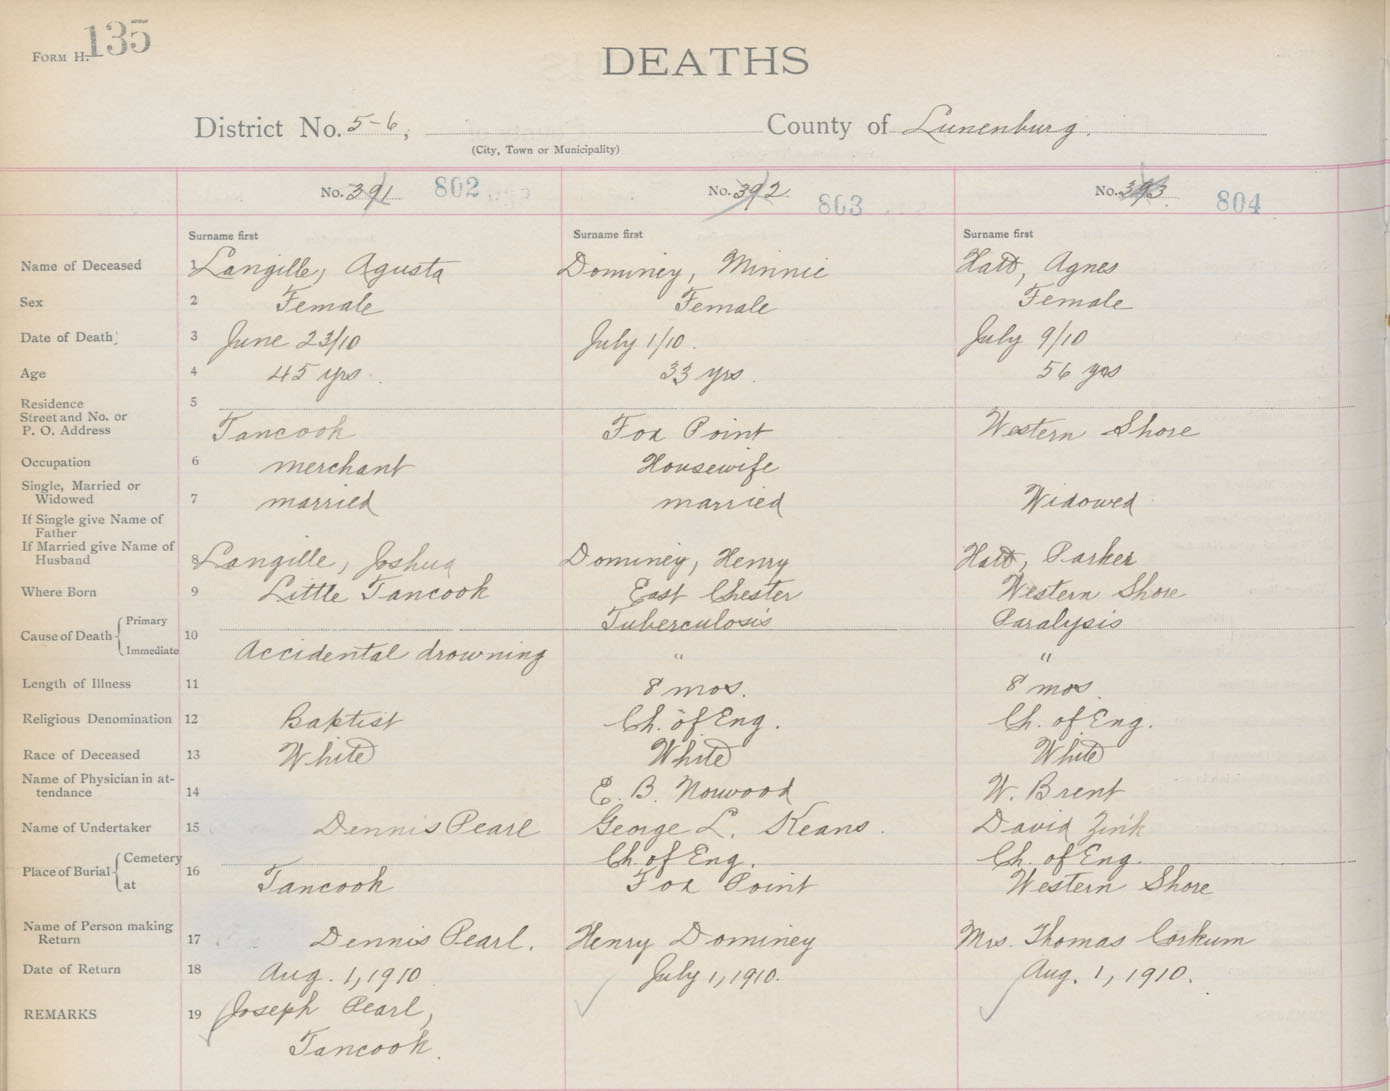 FORM H. 135
DEATHS
District No. 5-6, County of Lunenburg.
(City, Town or Municipality)
No. 391 802 No. 392 803 No. 393 804
Surname first Surname first Surname first
Name of Deceased 1 Langille, Agusta Dominey, Minnie Hatt, Agnes
Sex 2 Female Female Female
Date of Death 3 June 23/10 July 1/10. July 9/10
Age 4 45 yrs. 33 yrs. 56 yrs
Residence 5
Street and No. or
P. O. Address Tancook Fox Point Western Shore
Occupation 6 merchant Housewife
Single, Married or
Widowed 7 married married Widowed
If Single give Name of
Father
If Married give Name of
Husband 8 Langille, Joshua Dominey, Henry Hatt, Parker
Where Born 9 Little Tancook East Chester Western Shore
Cause of Death Primary 10 Tuberculosis Paralysis
Immediate Accidental drowning " "
Length of Illness 11 8 mos. 8 mos.
Religious Denomination 12 Baptist Ch. of Eng. Ch. of Eng.
Race of Deceased 13 White White White
Name of Physician in at-
tendance 14 E. B. Norwood W. Brent
Name of Undertaker 15 Dennis Pearl George L. Keans. David Zink
Place of Burial Cemetery 16 Ch. of Eng. Ch. of Eng.
at Tancook Fox Point Western Shore
Name of Person making
Return 17 Dennis Pearl. Henry Dominey Mrs. Thomas Corkum
Date of Return 18 Aug. 1, 1910 July 1, 1910. Aug. 1, 1910.
REMARKS 19 Joseph Pearl,
Tancook.